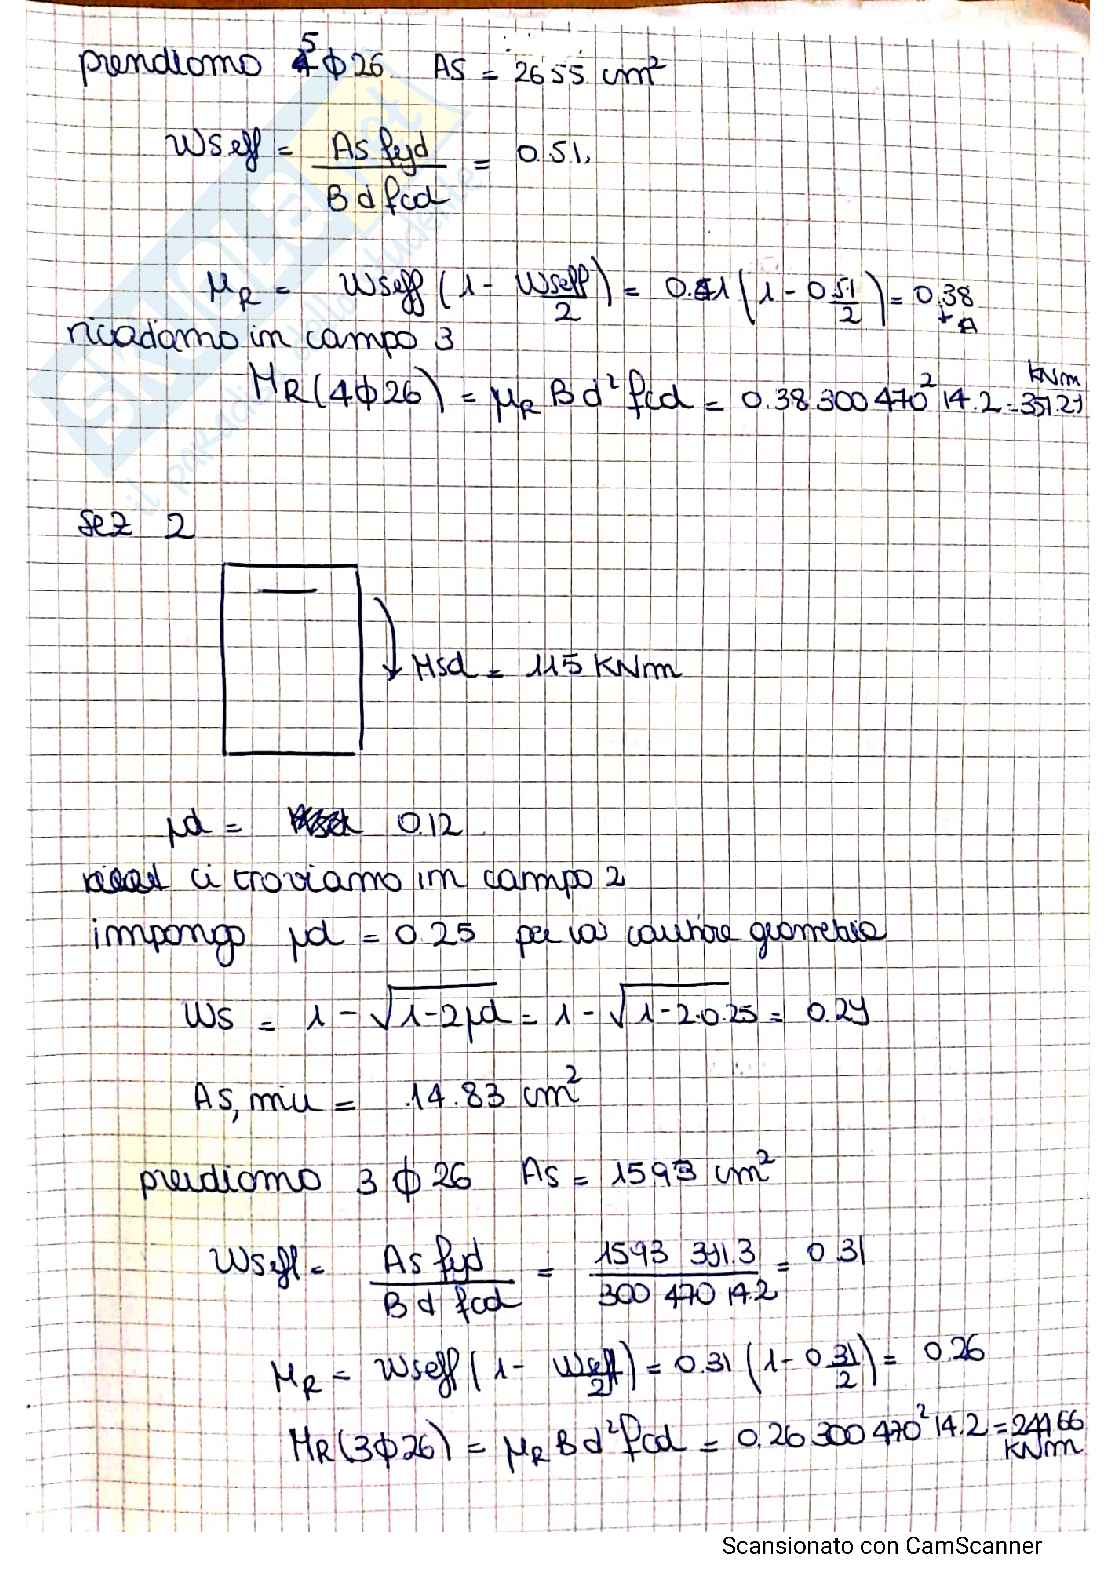 prendiamo 5ϕ26 As = 2655 cm²
Ws.eff = As fyd / B d fcd = 0.51.
μR = Wseff (1 - Wseff/2) = 0.51 (1 - 0.51/2) = 0.38
ricadiamo in campo 3
MR (4ϕ26) = μR B d² fcd = 0.38 300 470² 14.2 = 357.29 kNm
sez 2
Msd = 115 KNm
μd = 0.12
ci troviamo in campo 2
impongo μd = 0.25 per geometria
Ws = 1 - √1-2μd = 1 - √1-2.0.25 = 0.29
As, min = 14.83 cm²
prendiamo 3 ϕ 26 As = 1593 cm²
Wseff = As fyd / B d fcd = 1593 391.3 / 300 470 14.2 = 0.31
μR = Wseff (1 - Wseff/2) = 0.31 (1 - 0.31/2) = 0.26
MR (3ϕ26) = μR B d² fcd = 0.26 300 470² 14.2 = 244.66 KNm
Scansionato con CamScanner